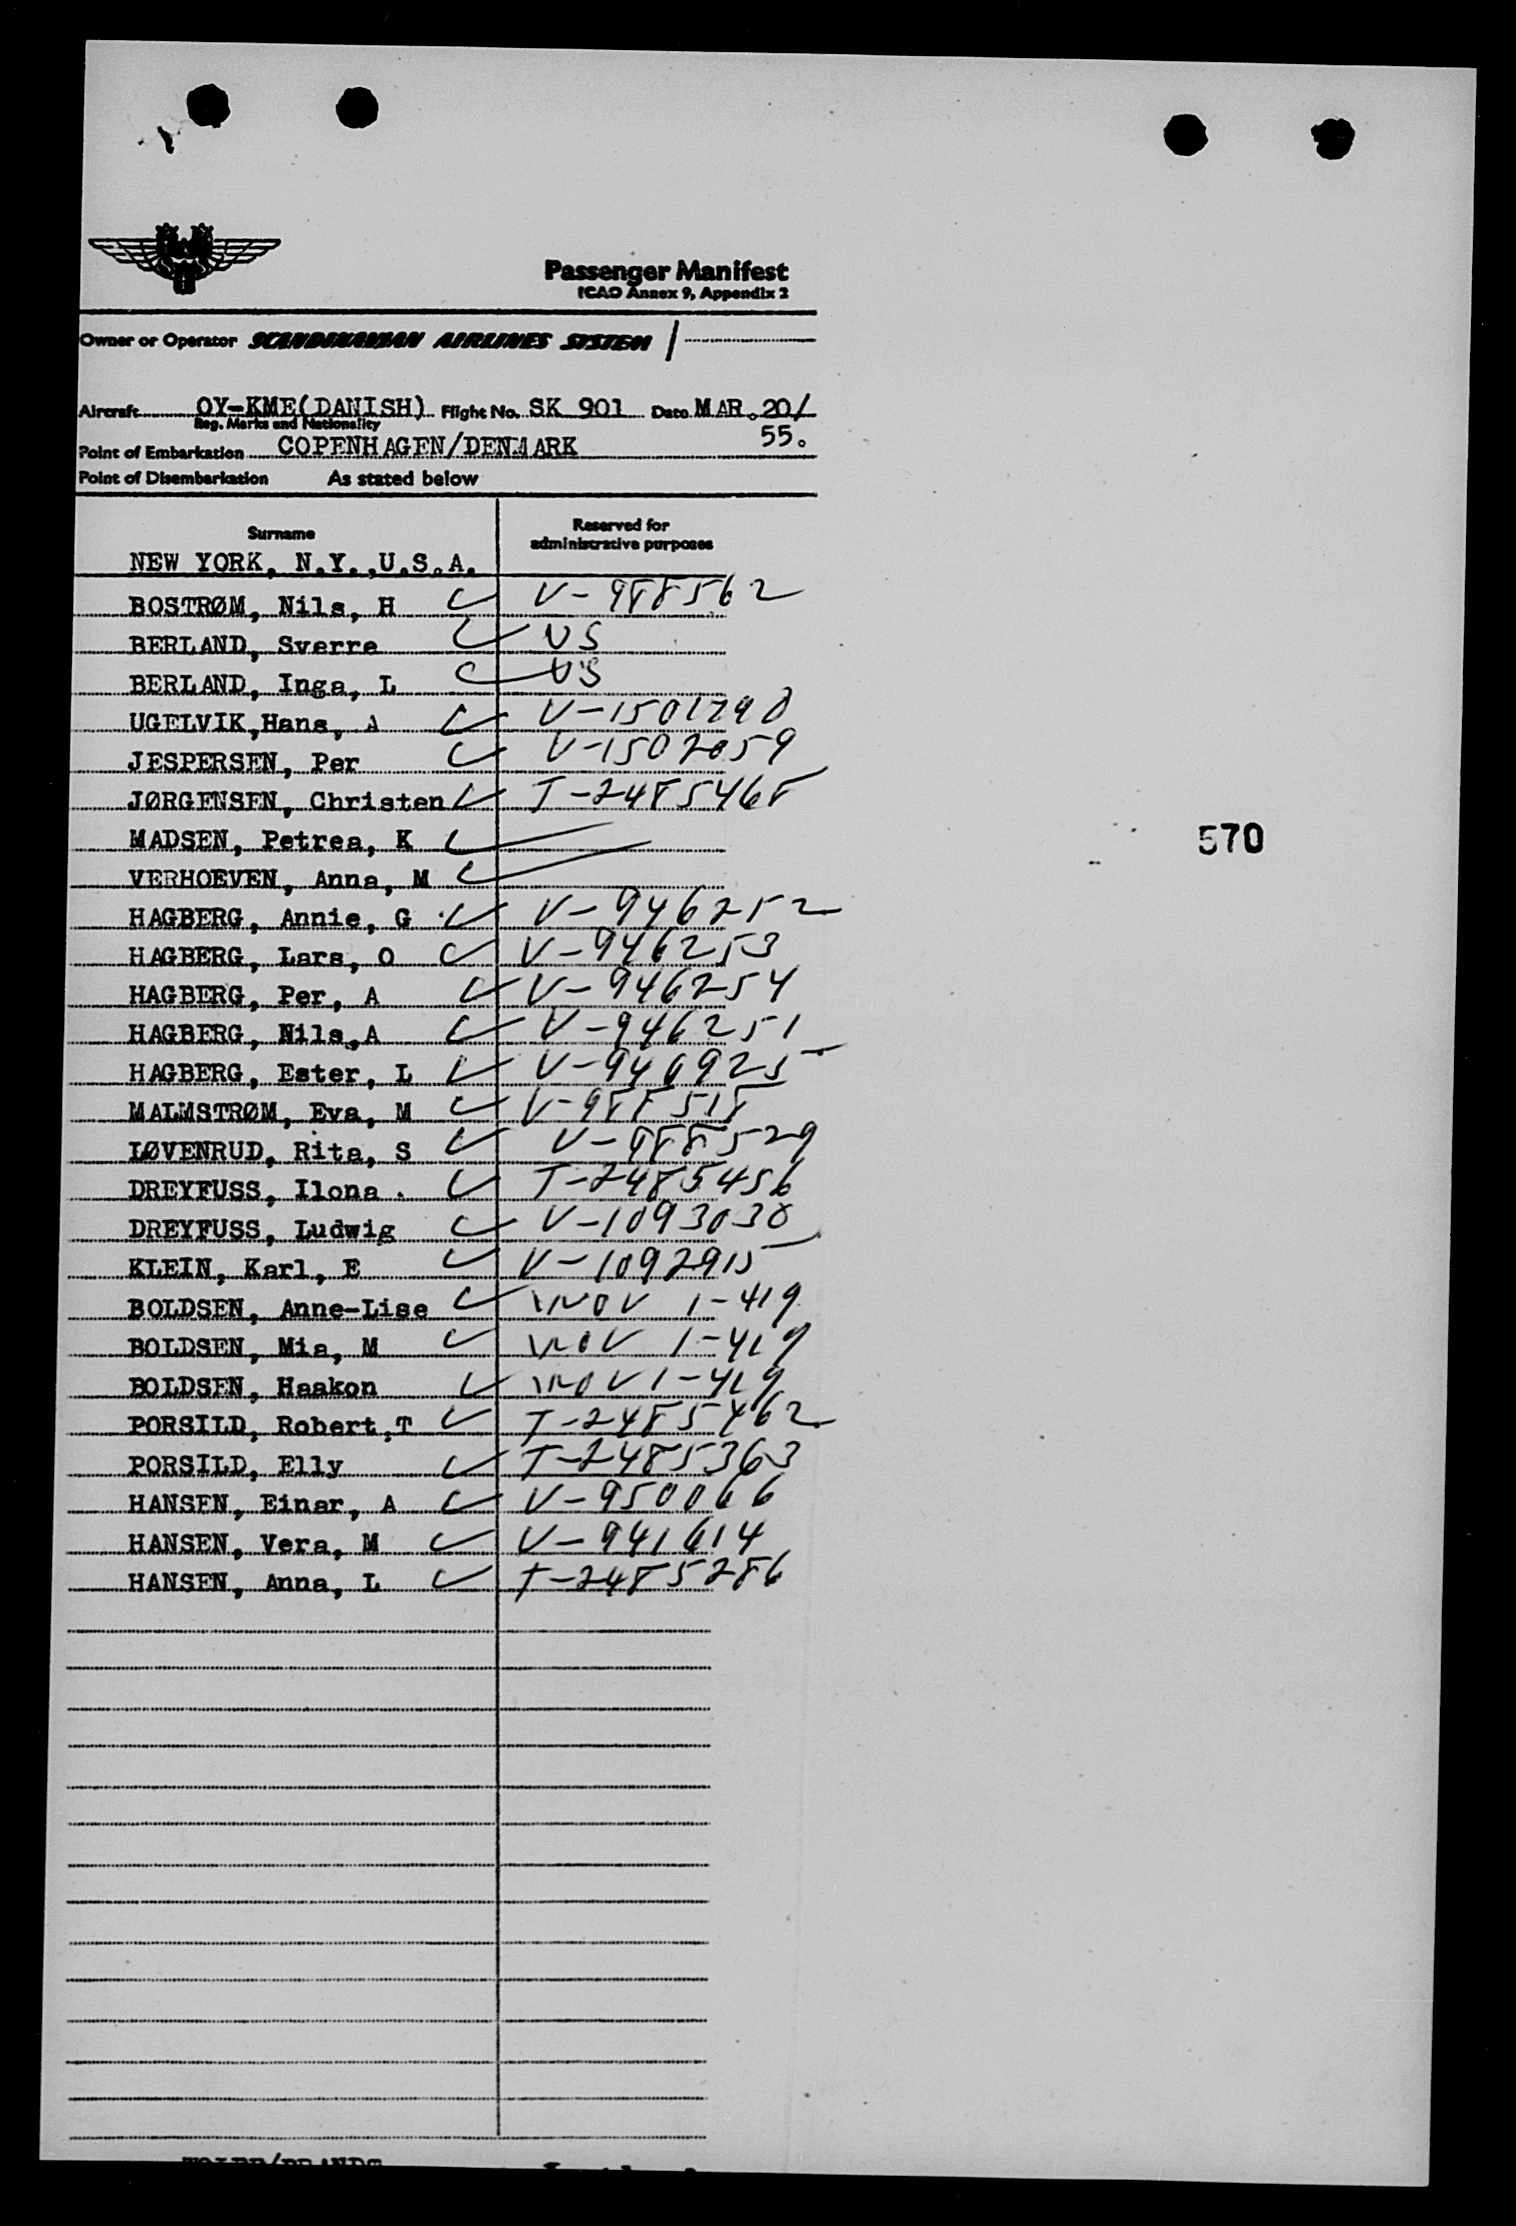 Passenger Manifest
ICAO Annex 9, Appendix 2
Owner or Operator SCANDINAVIAN AIRLINES SYSTEM /
Aircraft OY-KME(DANISH) Flight No. SK 901 Date MAR.20/
Reg. Marks and Nationality
55.
Point of Embarkation COPENHAGEN/DENMARK
Point of Disembarkation As stated below
Surname Reserved for administrative purposes
NEW YORK, N.Y.,U.S.A.
BOSTRØM, Nils, H V-988562
BERLAND, Sverre US
BERLAND, Inga, L US
UGELVIK,Hans, A V-1501290
JESPERSEN, Per V-1502059
JØRGENSEN, Christen T-2485468
570
MADSEN, Petrea, K
VERHOEVEN, Anna, M
HAGBERG, Annie, G V-946252
HAGBERG, Lars, O V-946253
HAGBERG, Per, A V-946254
HAGBERG, Nils,A V-946251
HAGBERG, Ester, L V-946925
MALMSTRØM, Eva, M V-988518
LØVENRUD, Rita, S V-988529
DREYFUSS, Ilona. T-2485456
DREYFUSS, Ludwig V-1093038
KLEIN, Karl, E V-1092915
BOLDSEN, Anne-Lise 1-419
BOLDSEN, Mia, M 1-419
BOLDSEN, Haakon 1-419
PORSILD, Robert,T T-2485462
PORSILD, Elly T-2485363
HANSEN, Einar, A V-950066
HANSEN, Vera, M V-941614
HANSEN, Anna, L T-2485286